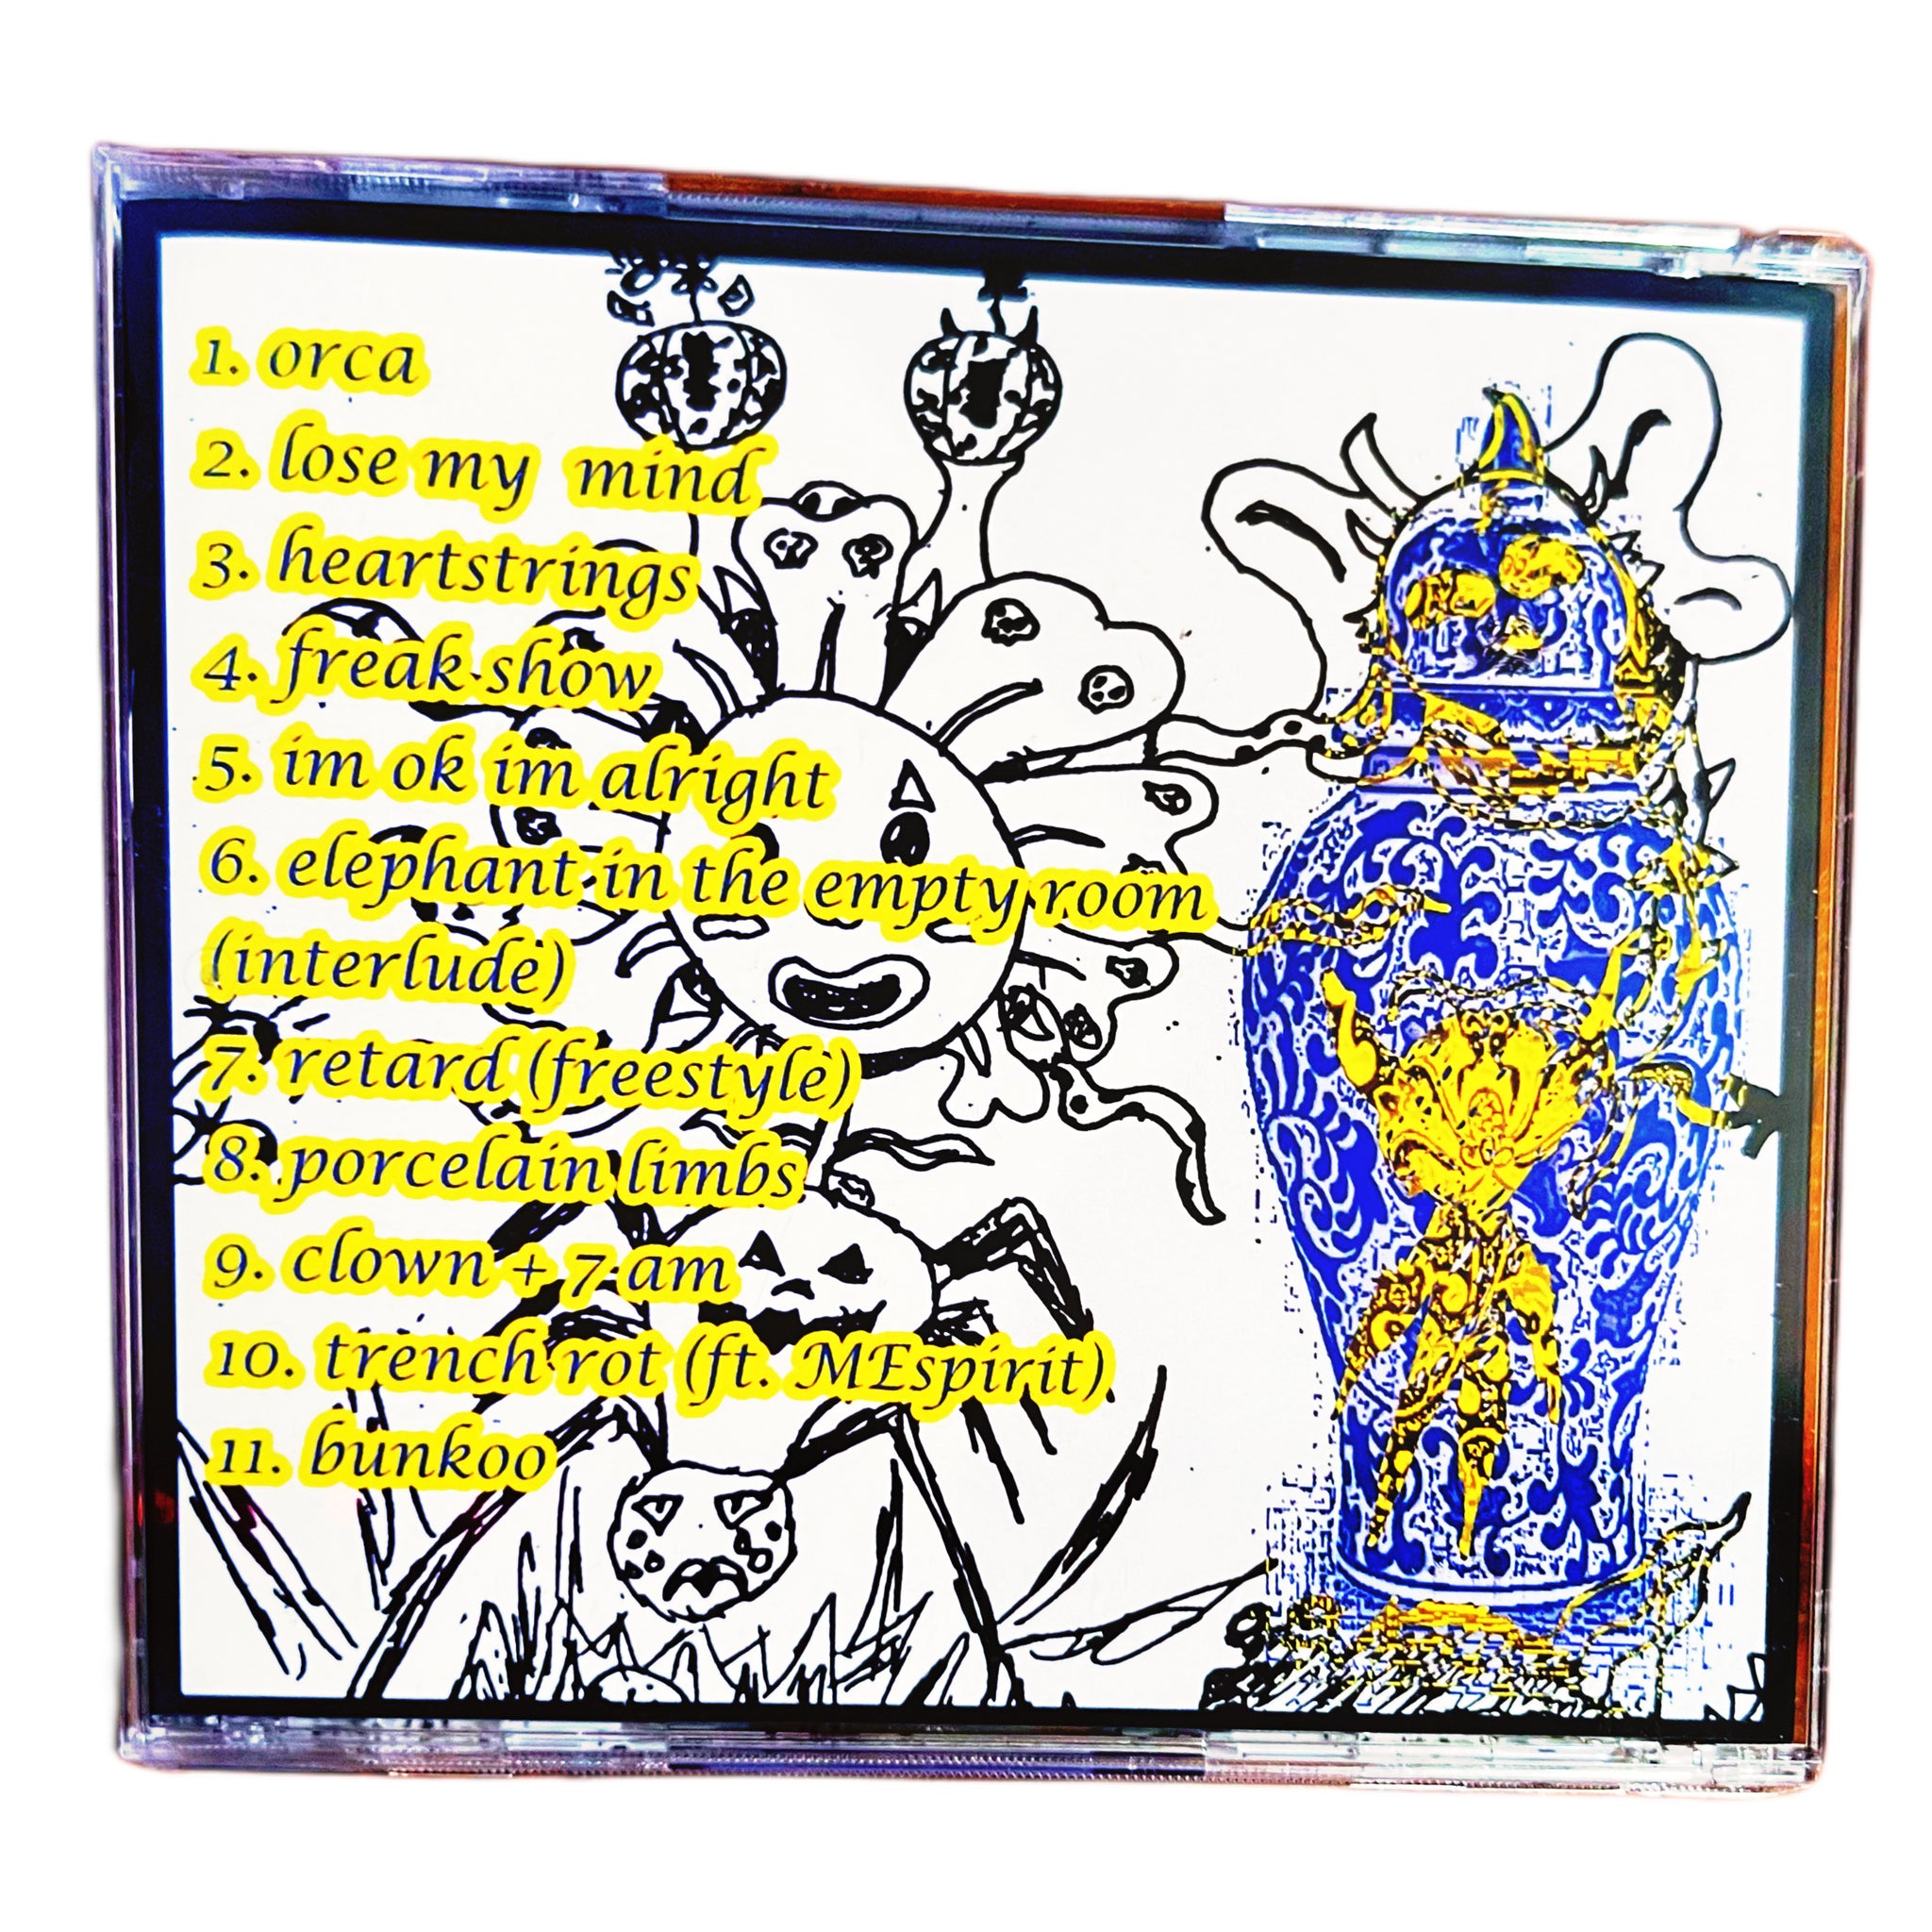 1. orca
2. lose my mind
3. heartstrings
4. freak show
5. im ok im alright
6. elephant in the empty room
(interlude)
7. retard (freestyle)
8. porcelain limbs
9. clown + 7 am
10. trench rot (ft. MEspirit)
11. bunkoo